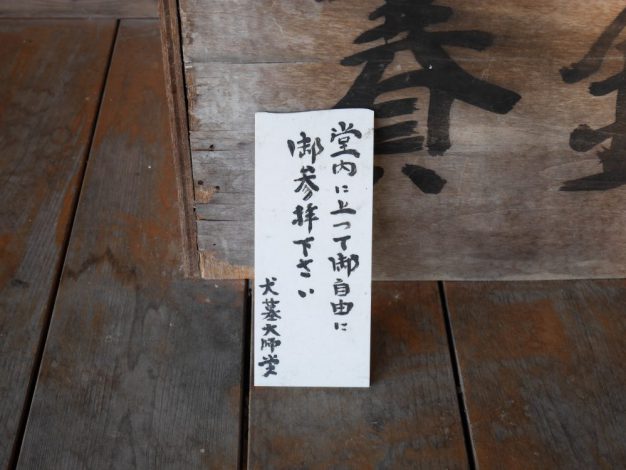 堂内に上って御自由に
御参拝下さい
犬墓大師堂